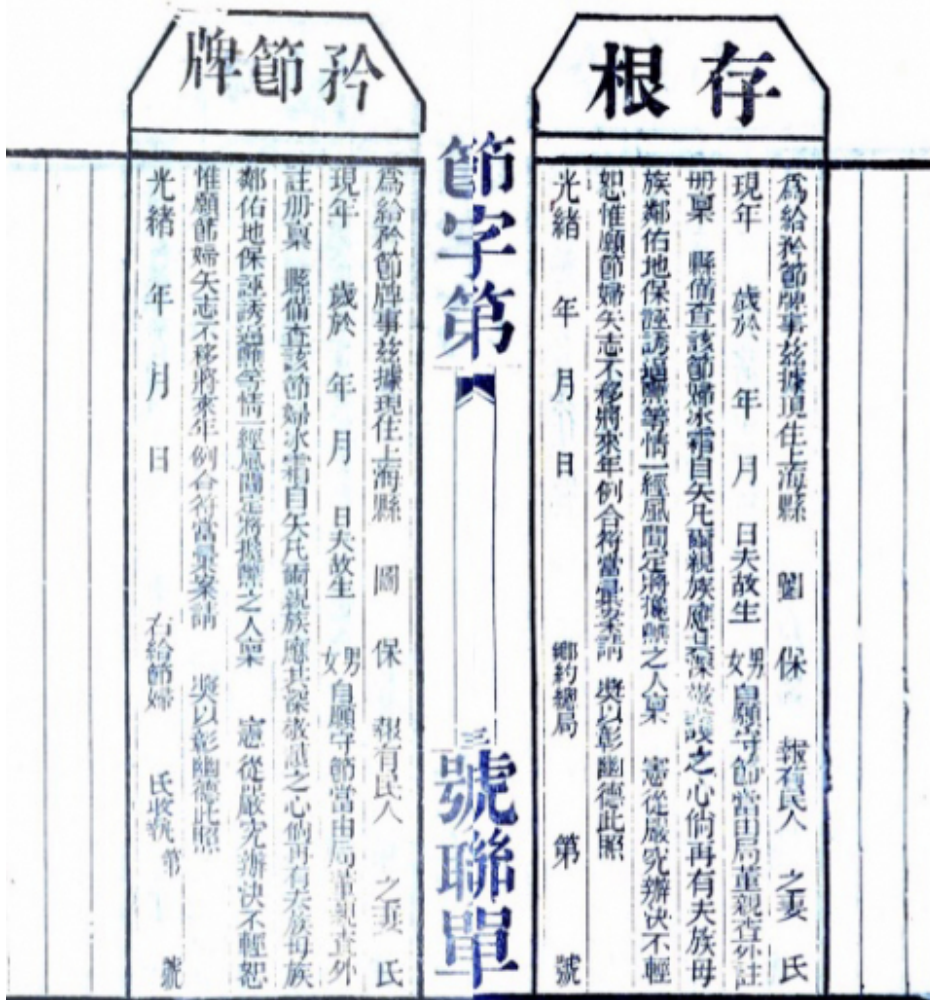 存根
為給矜節牌事茲據項住上海縣 圖 保 報有民人 之妻 氏
現年 歲於 年 月 日夫故生 男女 自願守節當由局董親查外註
册稟 縣備查該節婦冰霜自矢凡爾親族應其深敬 之心倘再有夫族母
族鄰佑地保誣誘逼醮等情一經風聞定將擾 之人稟 憲從嚴究辦決不輕
恕惟願節婦矢志不移將來年例合符當彙案請 獎以彰幽德此照
光緒 年 月 日 鄉約總局 第 號
節字第 三 號聯單
矜節牌
為給矜節牌事茲據現住上海縣 圖 保 報有民人 之妻 氏
現年 歲於 年 月 日夫故生 男女 自願守節當由局董親查外
註册稟 縣備查該節婦冰霜自矢凡爾親族應其深敬 之心倘再有夫族母族
鄰佑地保誣誘逼醮等情一經風聞定將擾 之人稟 憲從嚴究辦決不輕恕
惟願節婦矢志不移將來年例合符當彙案請 獎以彰幽德此照
光緒 年 月 日 右給節婦 氏收執 第 號